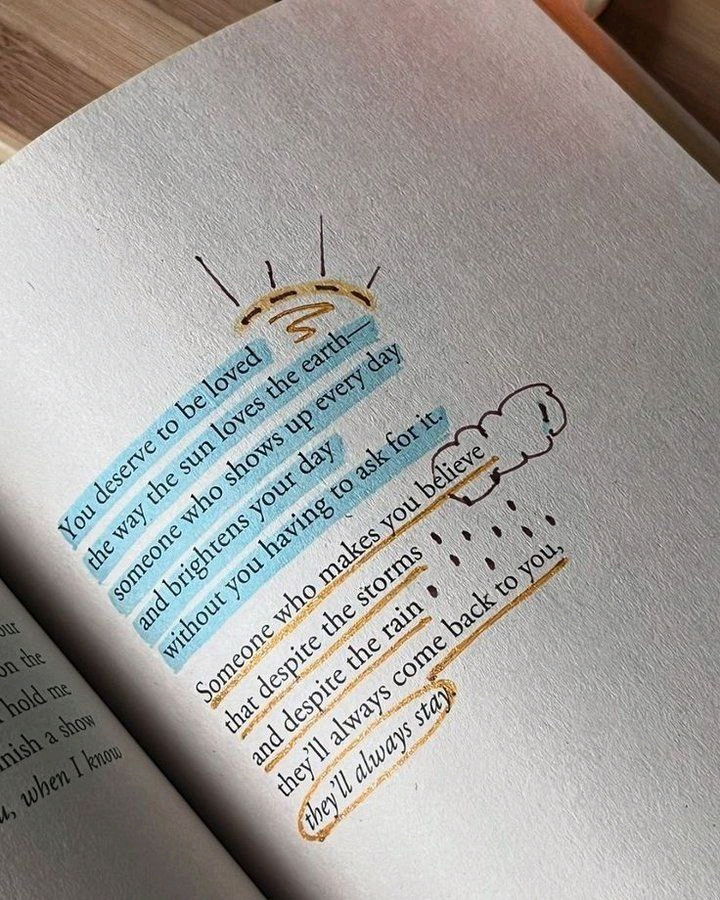 You deserve to be loved
the way the sun loves the earth—
someone who shows up every day
and brightens your day
without you having to ask for it.
Someone who makes you believe
that despite the storms
and despite the rain
they'll always come back to you,
they'll always stay
on the
hold me
a show
when I know